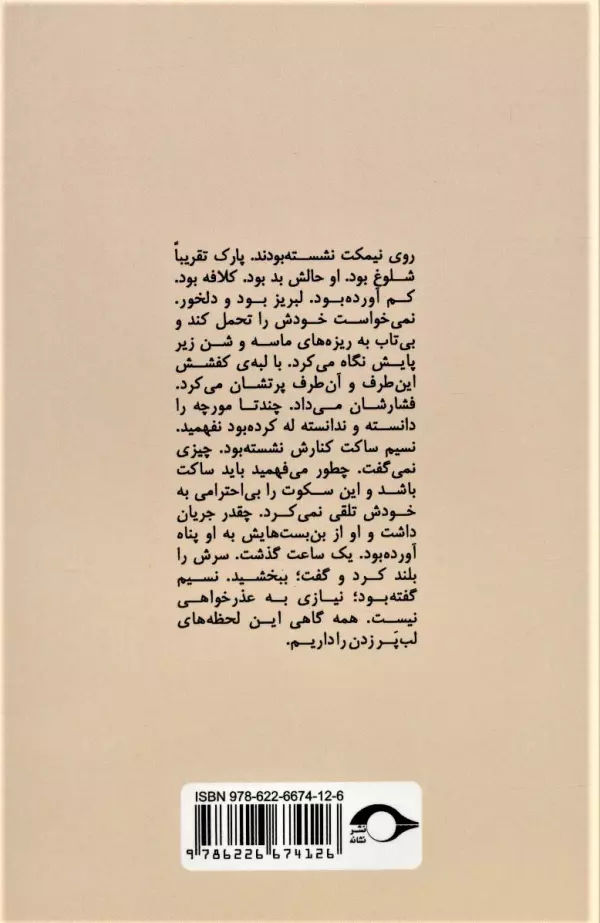 روی نیمکت نشسته‌بودند. پارک تقریباً
شلوغ بود. او حالش بد بود. کلافه بود.
کم آورده‌بود. لبریز بود و دلخور.
نمی‌خواست خودش را تحمل کند و
بی‌تاب به ریزه‌های ماسه و شن زیر
پایش نگاه می‌کرد. با لبه‌ی کفشش
این‌طرف و آن‌طرف پرتشان می‌کرد.
فشارشان می‌داد. چندتا مورچه را
دانسته و ندانسته له کرده‌بود نفهمید.
نسیم ساکت کنارش نشسته‌بود. چیزی
نمی‌گفت. چطور می‌فهمید باید ساکت
باشد و این سکوت را بی‌احترامی به
خودش تلقی نمی‌کرد. چقدر جریان
داشت و او از بن‌بست‌هایش به او پناه
آورده‌بود. یک ساعت گذشت. سرش را
بلند کرد و گفت؛ ببخشید. نسیم
گفته‌بود؛ نیازی به عذرخواهی
نیست. همه گاهی این لحظه‌های
لب‌پَر زدن را داریم.
ISBN 978-622-6674-12-6
9 786226 674126
نشر
نشانه